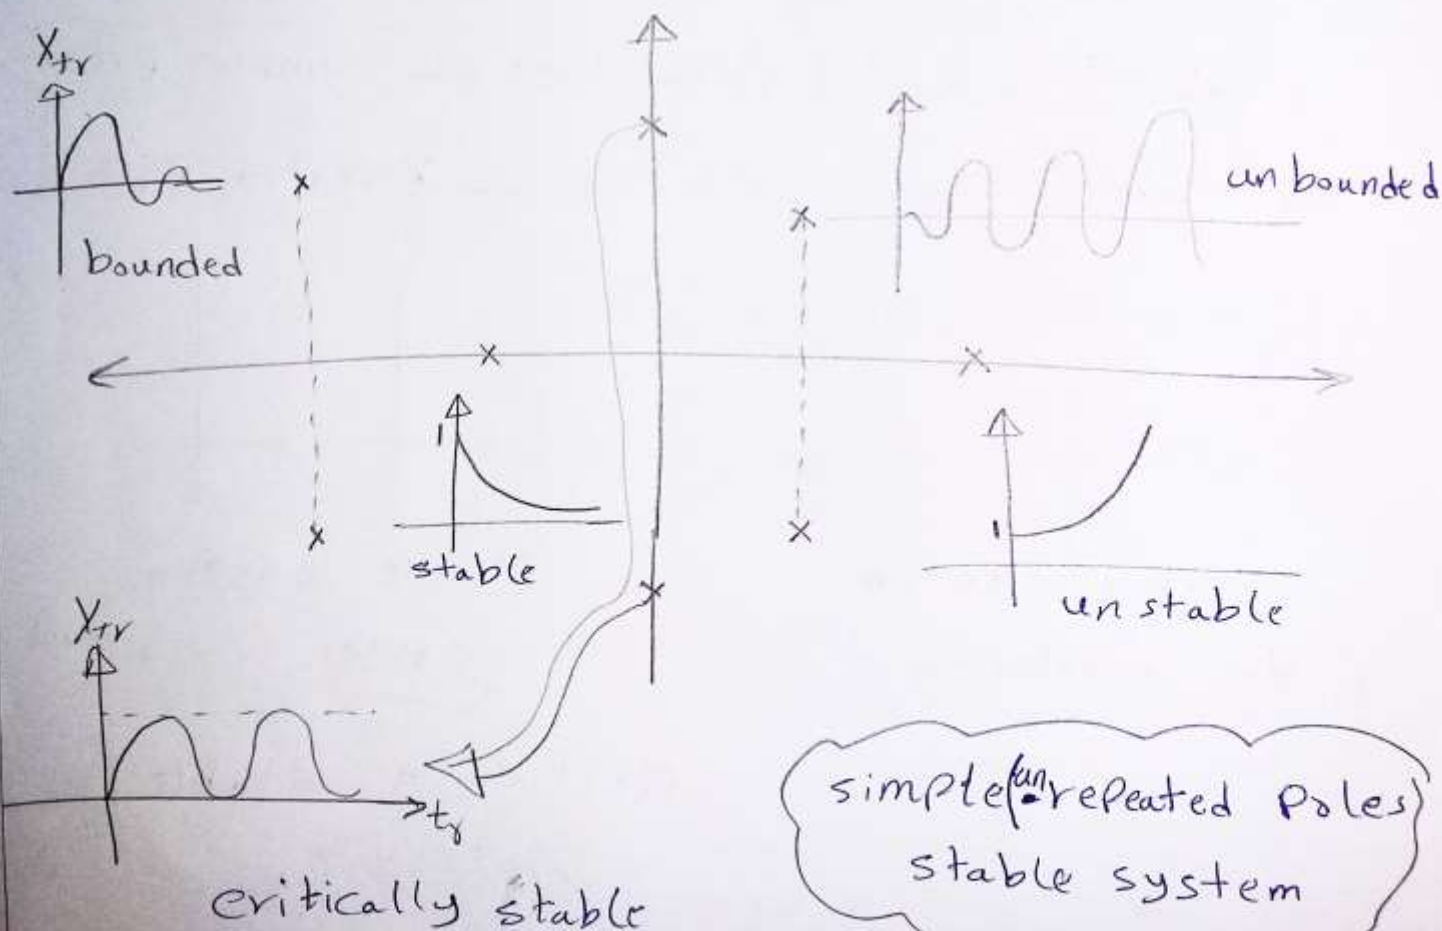 Xtr
bounded
un bounded
1
stable
1
un stable
Xtr
tr
critically stable
simple (un repeated poles)
stable system